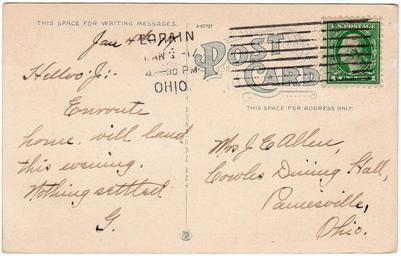 THIS SPACE FOR WRITING MESSAGES.
Jan
Helloo J:-
Enroute
home, will land
this evening.
Nothing settled
G.
LORAIN
JAN 3
4-30 PM
OHIO
POST
CARD
U.S. POSTAGE
THIS SPACE FOR ADDRESS ONLY.
Mrs J E Allen,
Cowles Dining Hall,
Painesville,
Ohio.